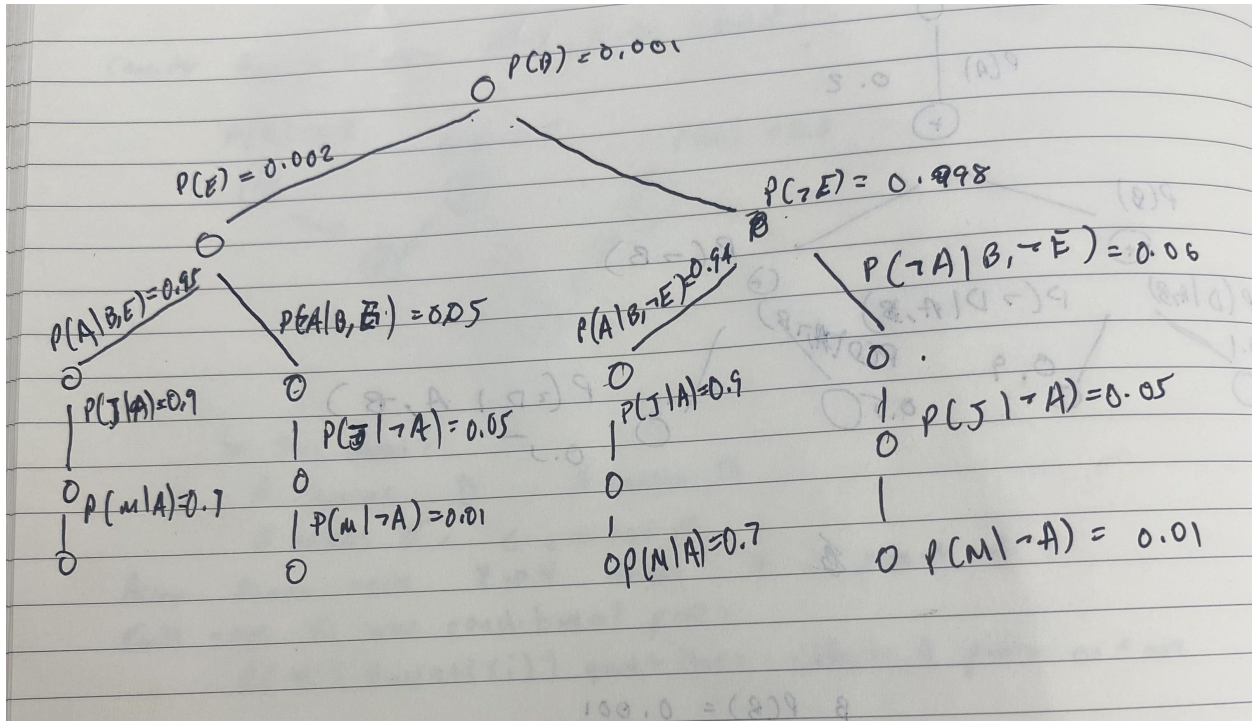 P(B) = 0.001
P(E) = 0.002
P(¬E) = 0.998
P(A|B,E)=0.95
P(¬A|B,E) = 0.05
P(A|B,¬E)=0.94
P(¬A|B,¬E) = 0.06
P(J|A)=0.9
P(J|¬A) = 0.05
P(J|A)=0.9
P(J|¬A) = 0.05
P(M|A)=0.7
P(M|¬A) = 0.01
P(M|A)=0.7
P(M|¬A) = 0.01